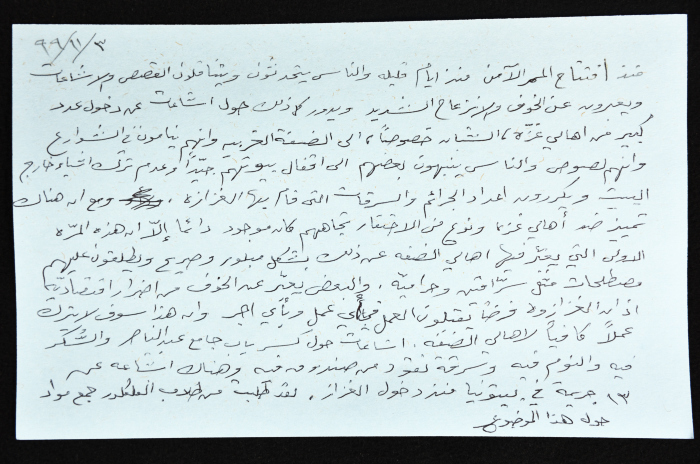 ٩٩/١١/٣
منذ افتتاح الممر الآمن منذ ايام قليله والناس يتحدثون ويتناقلون القصص والاشاعات
ويعبرون عن الخوف والانزعاج الشديد ويدور كل ذلك حول اشاعات عن دخول عدد
كبير من اهالي غزة، الشبان خصوصاً، الى الضفة الغربيه وانهم ينامون في الشوارع
وانهم لصوص والناس ينبهون بعضهم الى اقفال بيوتهم جيّداً وعدم ترك اشياء خارج
البيت ويكررون اعداد الجرائم والسرقات التي قام بها الغزازة. ومع ان هناك
تمييز ضد أهالي غزة ونوع من الاحتقار تجاههم كان موجود دائماً إلّا ان هذه المرّة
الاولى التي يعبّر فيها اهالي الضفه عن ذلك بشكل مبلور وصريح ويطلقون عليهم
مصطلحات مثل سرّاقين وحراميّة. والبعض يعبّر عن الخوف من اضرار اقتصاديّة
اذ ان الغزازوه فرضاً يقبلون العمل بأي عمل وبأي اجر وان هذا سوف لا يترك
عملاً كافياً لاهالي الضفه. اشاعات حول كسر باب جامع عبد الناصر والسُّكر
فيه والنوم فيه وسرقة نقود من صندوق فيه وهناك اشاعه عن
١٣ جريمة في بيتونيا منذ دخول الغزاز. لقد طلبت من طلاب الفلكلور جمع مواد
حول هذا الموضوع